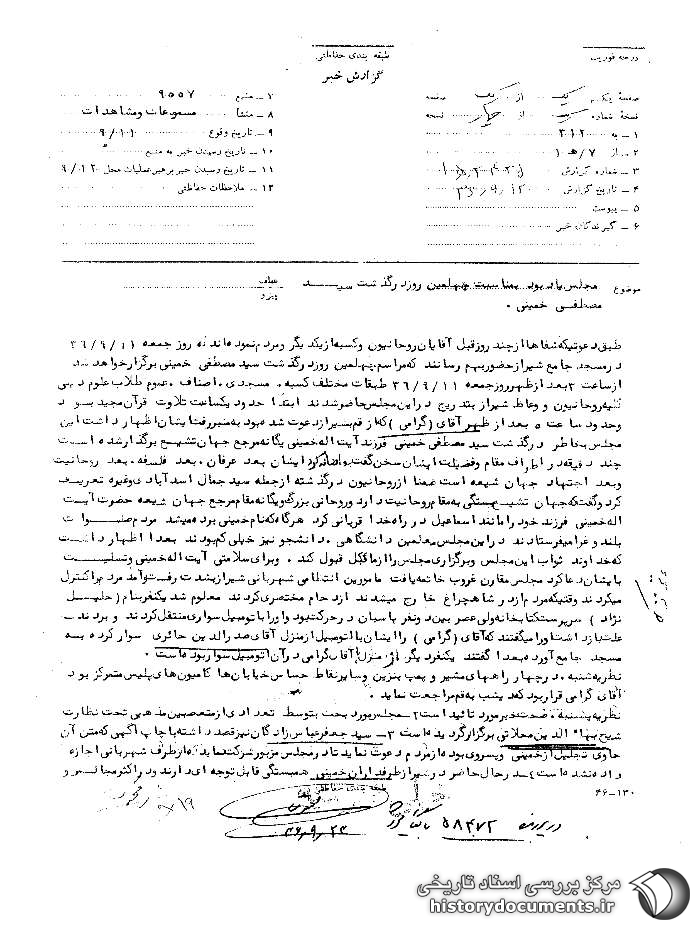 درجه فوریت
طبقه بندی حفاظتی
گزارش خبر
صفحه یک از یک صفحه
نسخه شماره از چهار نسخه
۱ ـ به ۳۱۲
۲ ـ از ۷/ هـ ۱
۳ ـ شماره گزارش
۴ ـ تاریخ گزارش
۵ ـ پیوست
۶ ـ گیرندگان خبر
۷ ـ منبع ۹۵۵۷
۸ ـ منشأ مسموعات ومشاهدات
۹ ـ تاریخ وقوع ۹/۰۱۱
۱۰ ـ تاریخ رسیدن خبر به منبع
۱۱ ـ تاریخ رسیدن خبر برهبر عملیات محل ۹/۰۱۲
۱۲ ـ ملاحظات حفاظتی
موضوع مجلس یاد بود بمناسبت چهلمین روز درگذشت سید
مصطفی خمینی .
عطف
پیرو
طبق دعوتیکه شفاها از چند روز قبل آقایان روحانیون وکسبه از یکدیگر ومردم نموده اند که روز جمعه ۳۶/۹/۱۱
در مسجد جامع شیراز حضور بهم رسانند که مراسم چهلمین روز درگذشت سید مصطفی خمینی برگزار خواهد شد
از ساعت ۳ بعد از ظهر روز جمعه ۳۶/۹/۱۱ طبقات مختلف کسبه . مسجدی . اصناف . عموم طلاب علوم دینی
کلیه روحانیون و وعاظ شیراز بتدریج در این مجلس حاضر شدند ابتدا حدود یکساعت تلاوت قرآن مجید بود
وحدود ساعت ۵ بعد از ظهر آقای (گرامی) که از قم بشیراز دعوت شده بود به منبر رفتایشان اظهار داشت این
مجلس بخاطر درگذشت سید مصطفی خمینی فرزند آیت اله خمینی یگانه مرجع جهان تشیع برگذار شده است
چند دقیقه در اطراف مقام وفضیلت ایشان سخن گفت و اضافه کرد ایشان بعد عرفان . بعد فلسفه . بعد روحانیت
وبعد اجتهاد جهان شیعه است ضمنا از روحانیون درگذشته از جمله سید جمال اسدآبادی وغیره تعریف
کرد وگفت که جهان تشیع بستگی به مقام روحانیت دارد وروحانی بزرگ ویگانه مقام مرجع جهان شیعه حضرت آیت
اله خمینی فرزند خود را مانند اسماعیل در راه خدا قربانی کرد هرگاه که نام خمینی بوده میشد مردم صلوات
بلند وغرا میفرستادند در این مجلس معلمین دانشگاهی . دانشجو نیز خیلی کم بودند بعدا اظهار داشت
که خداوند ثواب این مجلس وبرگزاری مجلس را از ما قبل قبول کند . وبرای سلامتی آیت اله خمینی وتسلیت
بایشان دعا کرد مجلس مقارن غروب خاتمه یافت مامورین انتظامی شهربانی شیراز بشدت رفت وآمد مردم را کنترل
میکردند وقتیکه مردم از در شاهچراغ خارج میشدند ازدحام مختصری کردند معلوم شد یکنفر بنام (جلیل
نژاد) سرپرست کتابخانه ولی عصر بین دو نفر پاسبان در حرکت بود واو را با اتومبیل سواری منتقل کردند و بردند
علت بازداشت او را میگفتند که آقای (گرامی) را ایشان با اتومبیل از منزل آقای صدرالدین حائری سوار کرده به
مسجد جامع آورده بعدا گفتند یکنفر دیگر از منزل آقای گرامی در آن اتومبیل سوار بوده است .
نظریه شنبه . در چهار راههای مشیر و پمپ بنزین وسایر نقاط حساس خیابان ها کامیون های پلیس متمرکز بود
آقای گرامی قرار بود که یشب به قم مراجعت نماید .
نظریه یکشنبه . صحت خبر مورد تائید است ۲ ـ مجلس مورد بحث بتوسط تعدادی از متعصبین مذهبی تحت نظارت
شیخ بهاء الدین محلاتی برگزار گردیده است ۳ ـ سید جعفر عباس زادگان نیز قصد داشته با چاپ آگهی که متن آن
حاوی تجلیل از خمینی وپسروی بوده از مردم دعوت نماید تا در مجلس مزبور شرکت نمایند که از طرف شهربانی اجازه
داده نشده است ۴ ـ در حال حاضر در شیراز طرفداران خمینی همبستگی قابل توجه ای دارند ودر اکثر مجالس و
طبقه بندی حفاظتی
۴۶-۱۳۰
در پرونده ۵۸۴۷۲
۳۶،۹،۲۳
مرکز بررسی اسناد تاریخی
historydocuments.ir